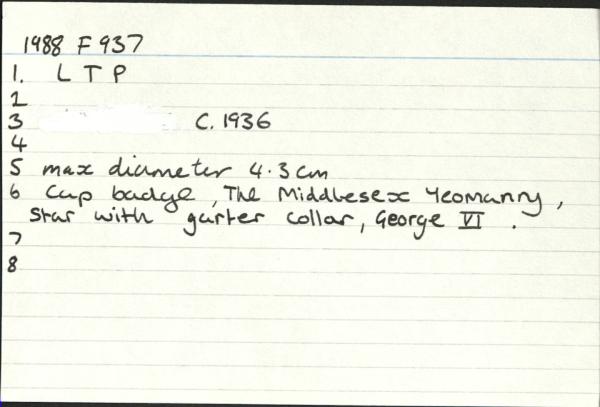 1988 F 937
1. L T P
2
3 C. 1936
4
5 max diameter 4.3cm
6 Cap badge, The Middlesex Yeomanry,
star with garter collar, George VI.
7
8